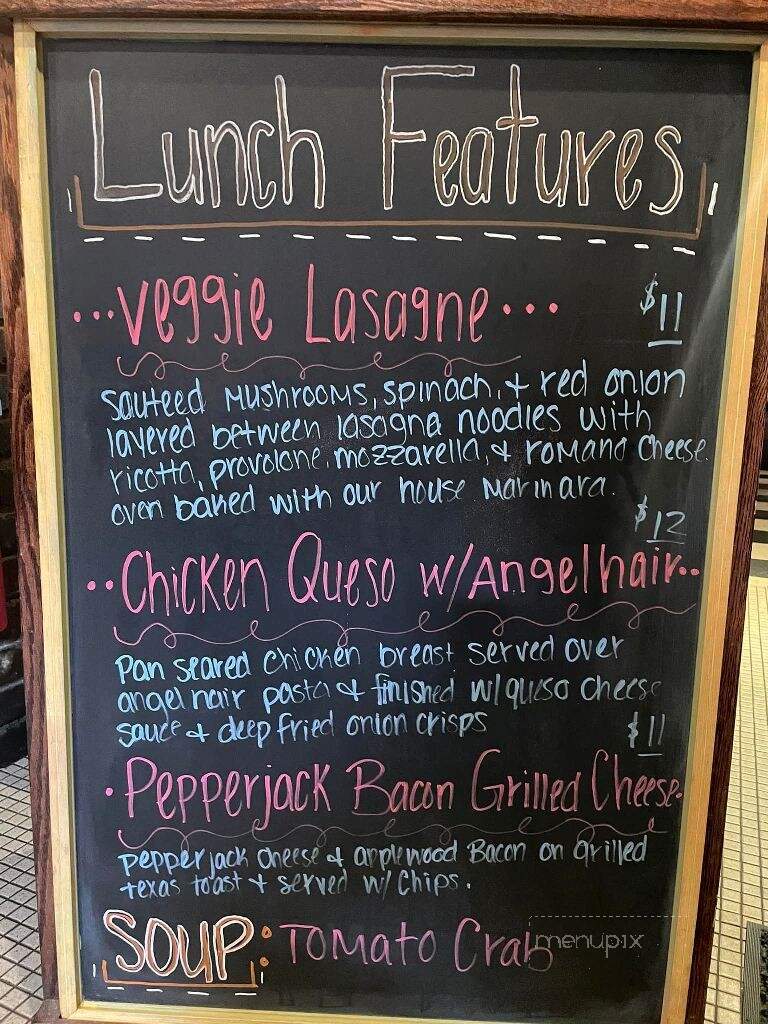 Lunch Features
...Veggie Lasagne... $11
Sauteed Mushrooms, spinach, + red onion
layered between lasagna noodles with
ricotta, provolone, mozzarella, & romano cheese.
oven baked with our house Marinara.
$12
..Chicken Queso w/Angelhair..
Pan seared chicken breast served over
angel hair pasta & finished w/queso cheese
sauce & deep fried onion crisps
$11
.Pepperjack Bacon Grilled Cheese.
pepper jack cheese & applewood Bacon on grilled
texas toast + served w/ Chips.
SOUP: Tomato Crab
menupix